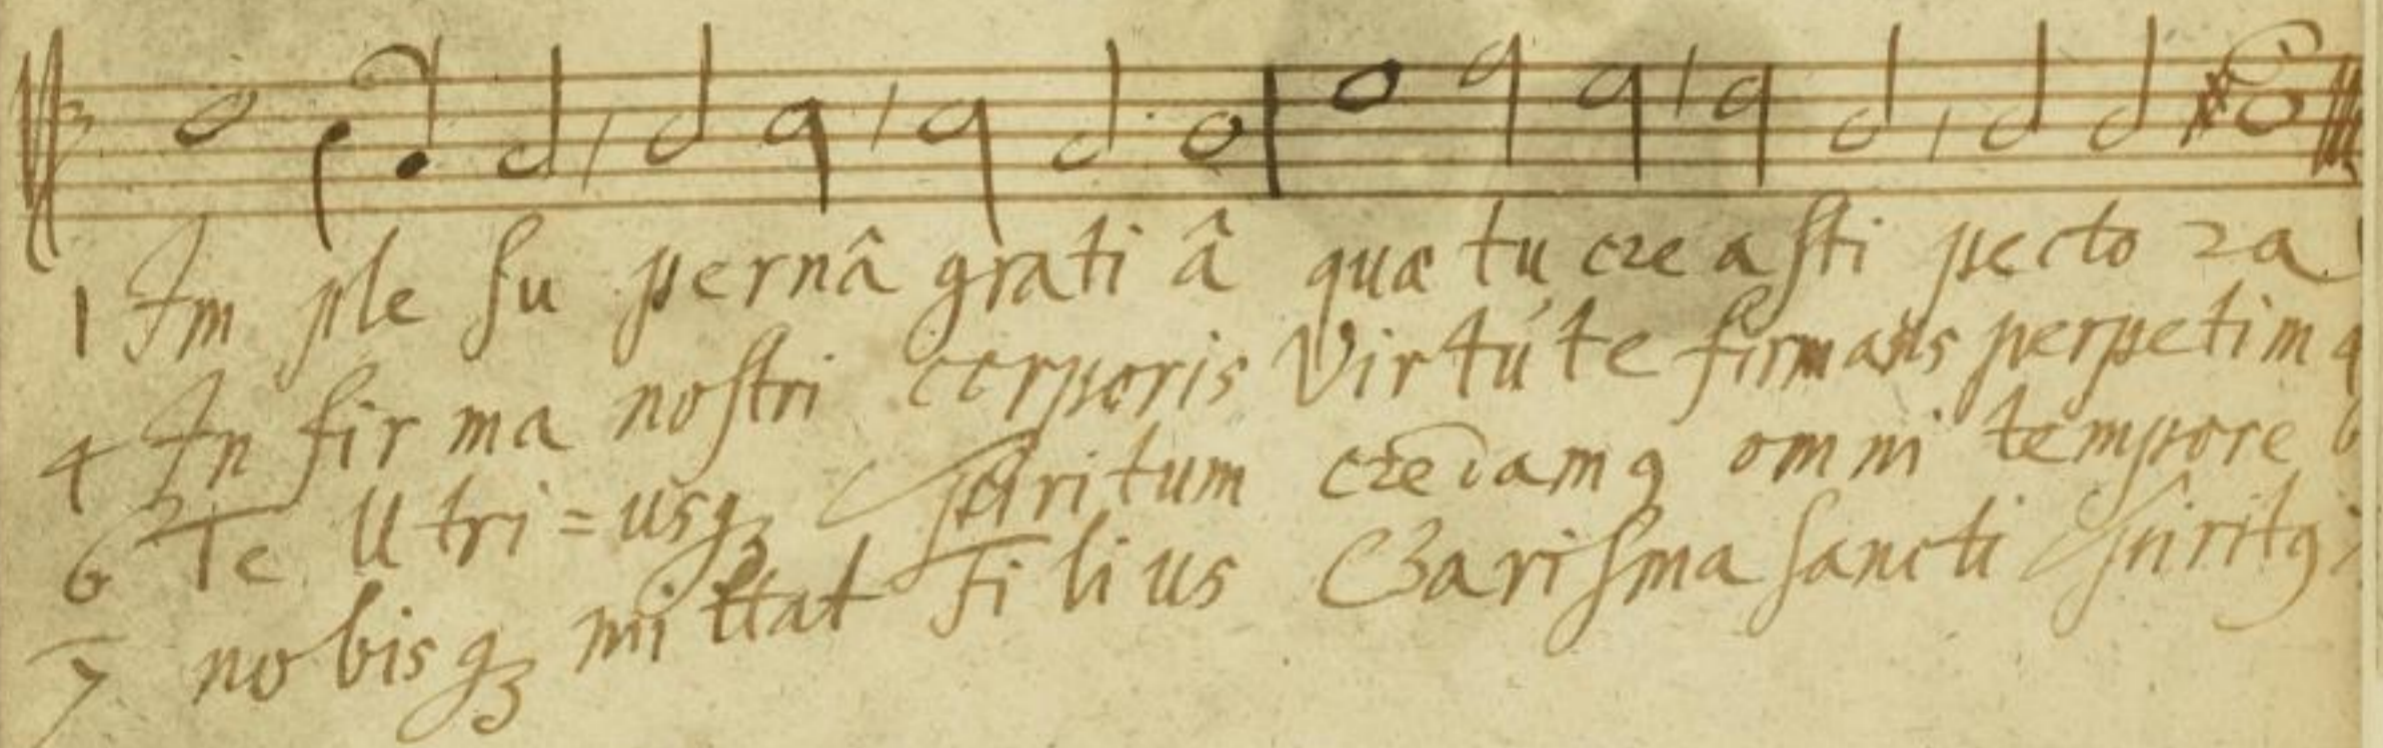 1 Im ple ſu pernâ grati â quæ tu cre a ſti pecto ra
4 In fir ma noſtri corporis Virtúte firmans perpetim
6 Te Utri=usqꝫ Spiritum credamꝗ omni tempore
7 nobisqꝫ mittat Filius Chariſma ſancti Spiritꝰ